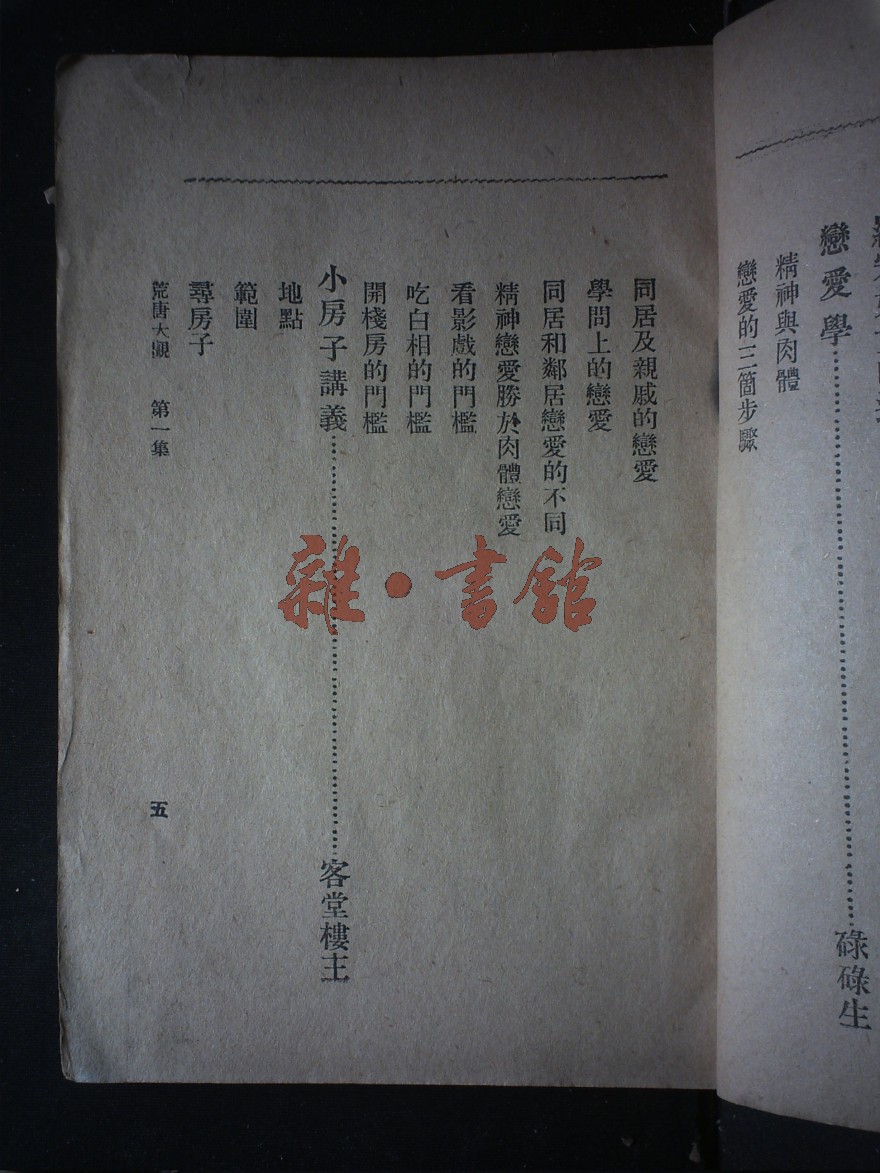 戀愛學……碌碌生
精神與肉體
戀愛的三箇步驟
同居及親戚的戀愛
學問上的戀愛
同居和鄰居戀愛的不同
精神戀愛勝於肉體戀愛
看影戲的門檻
吃白相的門檻
開棧房的門檻
小房子講義……客堂樓主
地點
範圍
尋房子
荒唐大觀 第一集
五
雜·書館